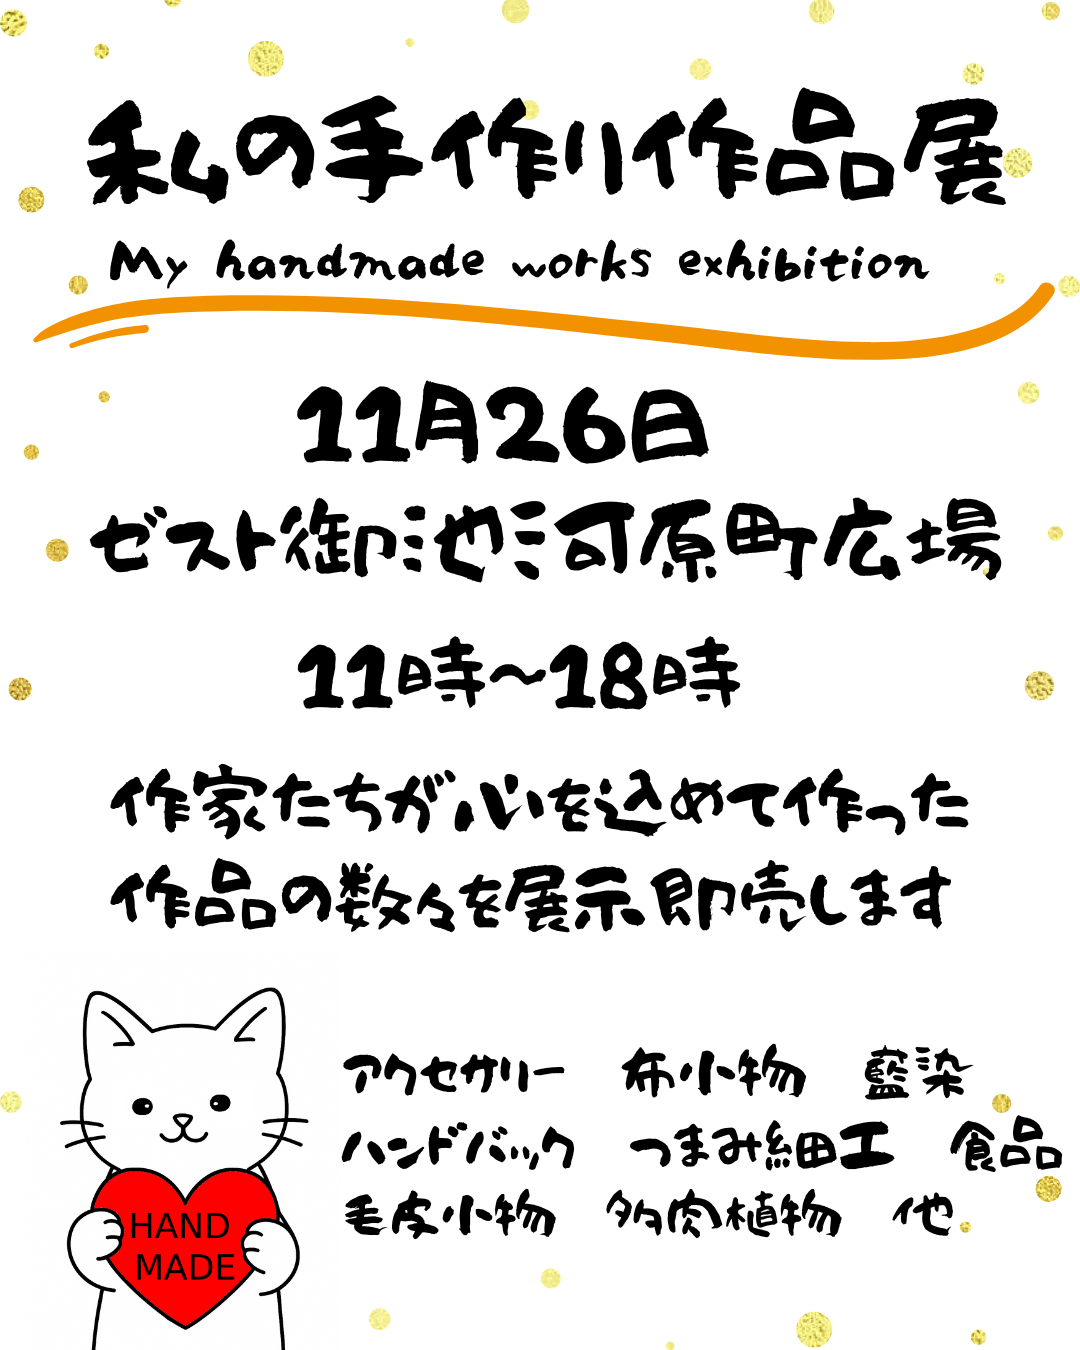 私の手作り作品展
My handmade works exhibition
11月26日
ゼスト御池河原町広場
11時～18時
作家たちが心を込めて作った
作品の数々を展示即売します
アクセサリー　布小物　藍染
ハンドバック　つまみ細工　食品
毛皮小物　多肉植物　他
HAND
MADE